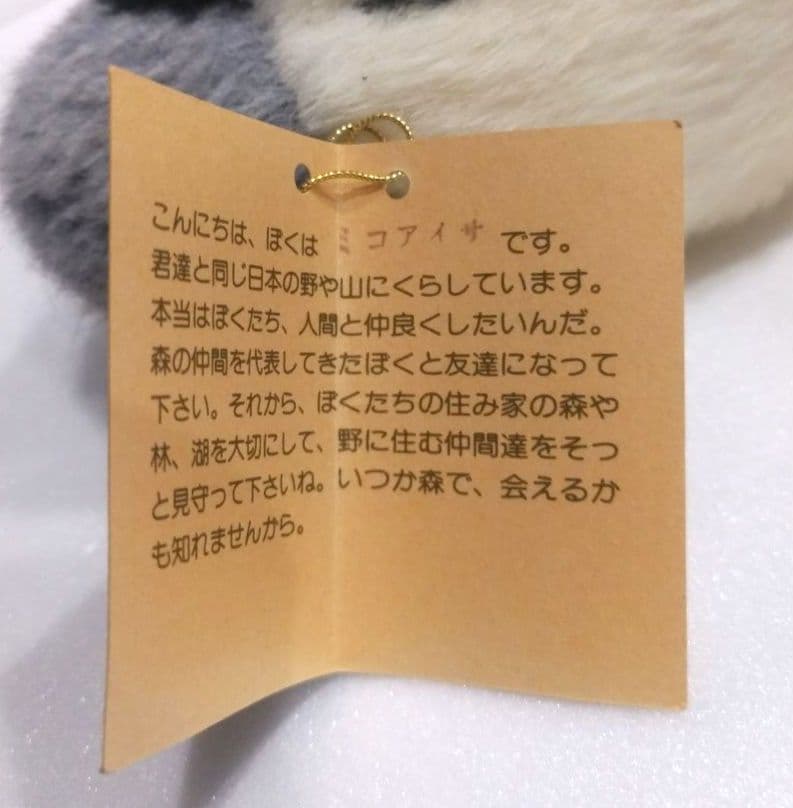 こんにちは、ぼくは ミコアイサ です。
君達と同じ日本の野や山にくらしています。
本当はぼくたち、人間と仲良くしたいんだ。
森の仲間を代表してきたぼくと友達になって
下さい。それから、ぼくたちの住み家の森や
林、湖を大切にして、野に住む仲間達をそっ
と見守って下さいね。いつか森で、会えるか
も知れませんから。